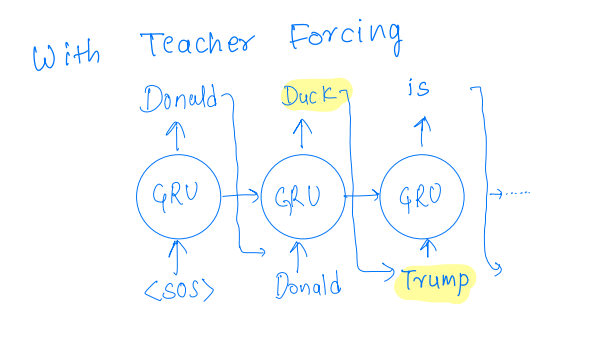 With Teacher Forcing
Donald Duck is
GRU GRU GRU
<SOS> Donald Trump